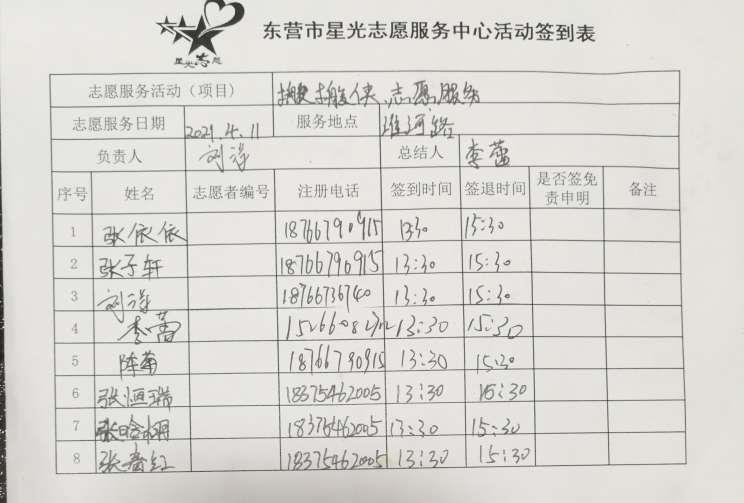 东营市星光志愿服务中心活动签到表
星光志愿
志愿服务活动（项目） 搬搬侠志愿服务
志愿服务日期 2021.4.11 服务地点 淮河路
负责人 刘 总结人 李蕾
序号 姓名 志愿者编号 注册电话 签到时间 签退时间 是否签免责申明 备注
1 张依依 18766790915 1330 15:30
2 张子轩 18766790915 13:30 15:30
3 刘 18766736740 13:30 15:30
4 李蕾 13:30 15:30
5 陈菊 18766790915 13:30 15:30
6 张恒瑞 18375462005 13:30 15:30
7 张 18375462005 13:30 15:30
8 张 红 18375462005 13:30 15:30